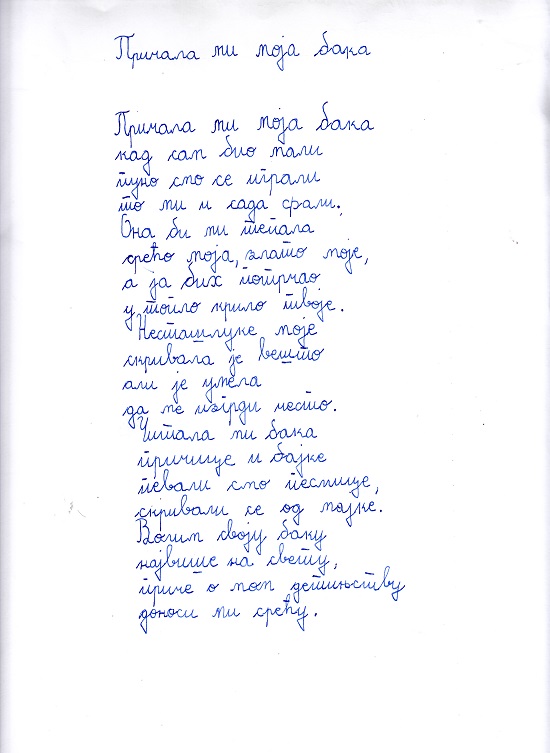 Причала ми моја бака
Причала ми моја бака
кад сам био мали
пуно смо се играли
то ми и сада фали.
Она би ми тепала
срећо моја, злато моје,
а ја бих потрчао
у топло крило твоје.
Несташлуке моје
скривала је вешто
али је умела
да ме изгрди често.
Читала ми бака
причице и бајке
певали смо песмице,
скривали се од мајке.
Волим своју баку
највише на свету,
приче о мом детињству
доноси ми срећу.